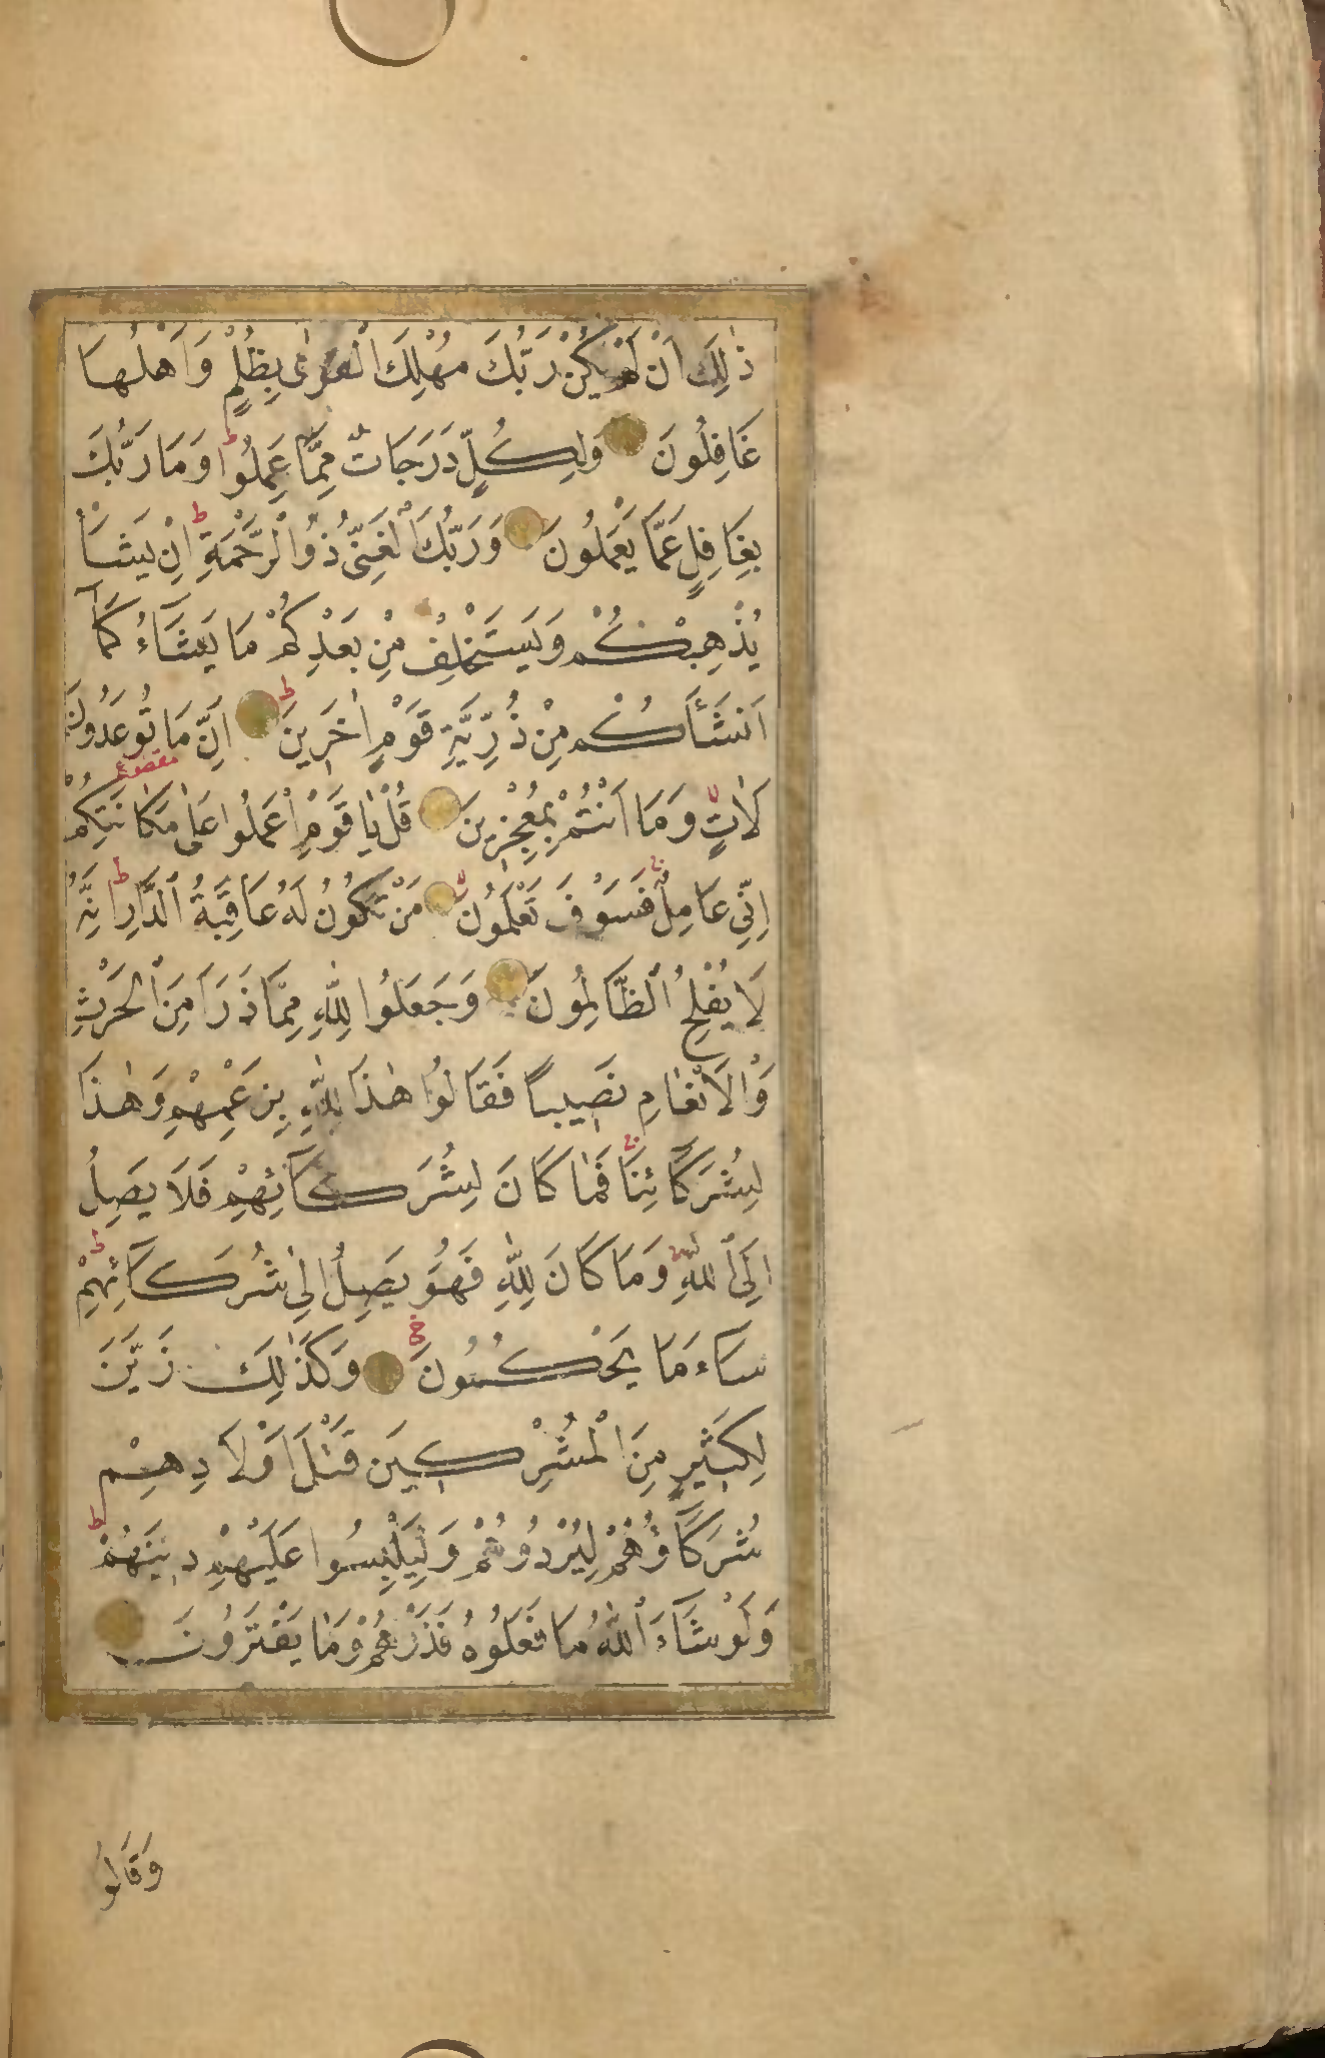 ذٰلِكَ اَنْ لَمْ يَكُنْ رَبُّكَ مُهْلِكَ الْقُرٰى بِظُلْمٍ وَاَهْلُهَا
غَافِلُونَ وَلِكُلٍّ دَرَجَاتٌ مِمَّا عَمِلُوا ط وَمَا رَبُّكَ
بِغَافِلٍ عَمَّا يَعْمَلُونَ وَرَبُّكَ الْغَنِيُّ ذُو الرَّحْمَةِ ط اِنْ يَشَأْ
يُذْهِبْكُمْ وَيَسْتَخْلِفْ مِنْ بَعْدِكُمْ مَا يَشَاءُ كَمَآ
اَنْشَأَكُمْ مِنْ ذُرِّيَّةِ قَوْمٍ اٰخَرِينَ ط اِنَّ مَا تُوعَدُونَ
لَاٰتٍ لا وَمَا اَنْتُمْ بِمُعْجِزِينَ قُلْ يَا قَوْمِ اعْمَلُوا عَلٰى مَكَانَتِكُمْ
اِنِّي عَامِلٌ فَسَوْفَ تَعْلَمُونَ لا مَنْ تَكُونُ لَهُ عَاقِبَةُ الدَّارِ ط اِنَّهُ
لَا يُفْلِحُ الظَّالِمُونَ وَجَعَلُوا لِلّٰهِ مِمَّا ذَرَاَ مِنَ الْحَرْثِ
وَالْاَنْعَامِ نَصِيبًا فَقَالُوا هٰذَا لِلّٰهِ بِزَعْمِهِمْ وَهٰذَا
لِشُرَكَائِنَا فَمَا كَانَ لِشُرَكَآئِهِمْ فَلَا يَصِلُ
اِلَى اللّٰهِ وَمَا كَانَ لِلّٰهِ فَهُوَ يَصِلُ اِلٰى شُرَكَآئِهِمْ ط
سَاءَ مَا يَحْكُمُونَ وَكَذٰلِكَ زَيَّنَ
لِكَثِيرٍ مِنَ الْمُشْرِكِينَ قَتْلَ اَوْلَادِهِمْ
شُرَكَاؤُهُمْ لِيُرْدُوهُمْ وَلِيَلْبِسُوا عَلَيْهِمْ دِينَهُمْ ط
وَلَوْ شَآءَ اللّٰهُ مَا فَعَلُوهُ فَذَرْهُمْ وَمَا يَفْتَرُونَ
وَقَالُوا